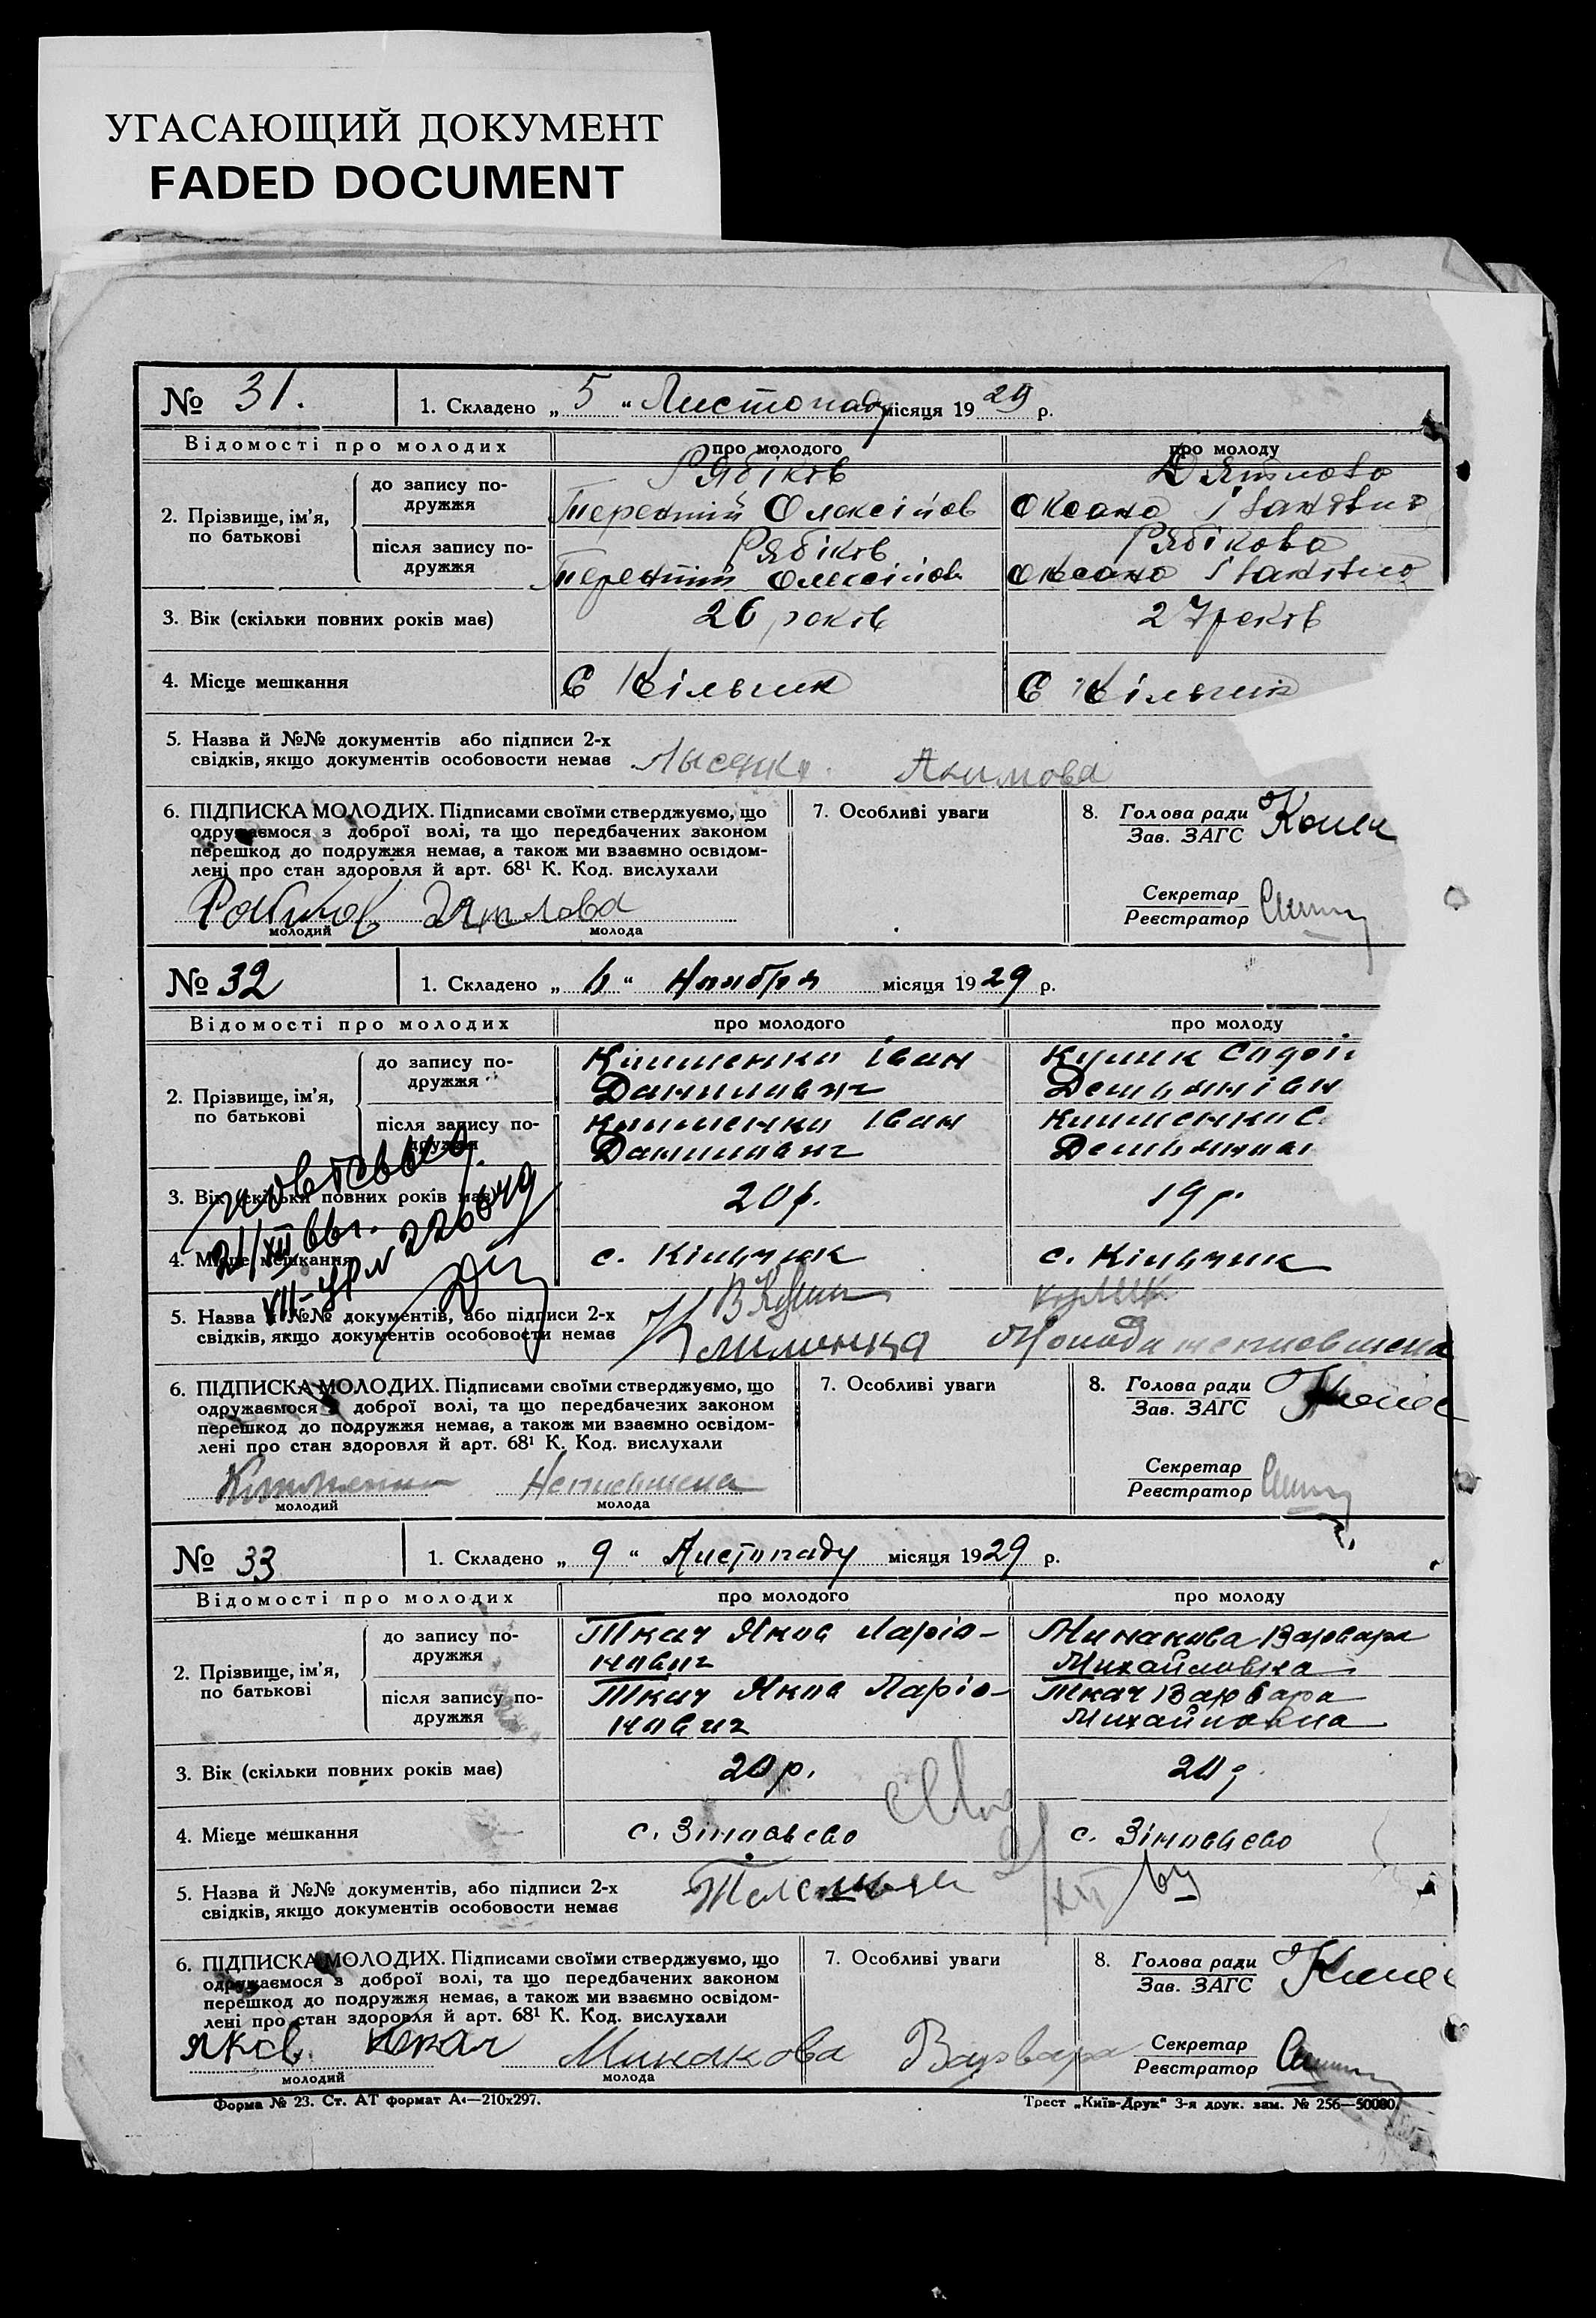 УГАСАЮЩИЙ ДОКУМЕНТ
FADED DOCUMENT
№ 31. 1. Складено „ 5 “ Листопаду місяця 1929 р.
Відомості про молодих про молодого про молоду
2. Прізвище, ім’я, по батькові
до запису по-
дружжя
Рябіков
Терентій Олексійов
Дятлова
Оксана Іванівна
після запису по-
дружжя
Рябіков
Терентій Олексійов
Рябікова
Оксана Іванівна
3. Вік (скільки повних років має) 26 років 27 років
4. Місце мешкання С Кільчик С Кільчик
5. Назва й №№ документів або підписи 2-х
свідків, якщо документів особовости немає Лысенко. Акимова
6. ПІДПИСКА МОЛОДИХ. Підписами своїми стверджуємо, що
одружаємося з доброї волі, та що передбачених законом
перешкод до подружжя немає, а також ми взаємно освідом-
лені про стан здоровля й арт. 68¹ К. Код. вислухали
Дятлова
молодий молода
7. Особливі уваги
8. Голова ради
Зав. ЗАГС
Секретар
Реєстратор
№ 32 1. Складено „ “ Ноября місяця 1929 р.
Відомості про молодих про молодого про молоду
2. Прізвище, ім’я,
по батькові
до запису по-
дружжя
Іван
Данилович
Кулик
після запису по-
дружжя
Іван
Данилович
3. Вік (скільки повних років має) 20 р. 19 р.
21/XII 66 г.
VII-УР № 226649
4. Місце мешкання с. Кільчик с. Кільчик
5. Назва й №№ документів, або підписи 2-х
свідків, якщо документів особовости немає
Кулик
6. ПІДПИСКА МОЛОДИХ. Підписами своїми стверджуємо, що
одружаємося з доброї волі, та що передбачених законом
перешкод до подружжя немає, а також ми взаємно освідом-
лені про стан здоровля й арт. 68¹ К. Код. вислухали
Неписьмена
молодий молода
7. Особливі уваги
8. Голова ради
Зав. ЗАГС
Секретар
Реєстратор
№ 33 1. Складено „ 9 “ Листопаду місяця 1929 р.
Відомості про молодих про молодого про молоду
2. Прізвище, ім’я,
по батькові
до запису по-
дружжя
Ткач Яков Ларіо-
нович
Минакова Варвара
Михайловна
після запису по-
дружжя
Ткач Яков Ларіо-
нович
Ткач Варвара
Михайловна
3. Вік (скільки повних років має) 20 р. 20 р.
4. Місце мешкання с. Зіновьево с. Зіновьево
5. Назва й №№ документів, або підписи 2-х
свідків, якщо документів особовости немає
6. ПІДПИСКА МОЛОДИХ. Підписами своїми стверджуємо, що
одружаємося з доброї волі, та що передбачених законом
перешкод до подружжя немає, а також ми взаємно освідом-
лені про стан здоровля й арт. 68¹ К. Код. вислухали
Яков Ткач Минакова Варвара
молодий молода
7. Особливі уваги
8. Голова ради
Зав. ЗАГС
Секретар
Реєстратор
Форма № 23. Ст. АТ формат А₄—210х297.
Трест „Київ-Друк“ 3-я друк. зам. № 256—50000.